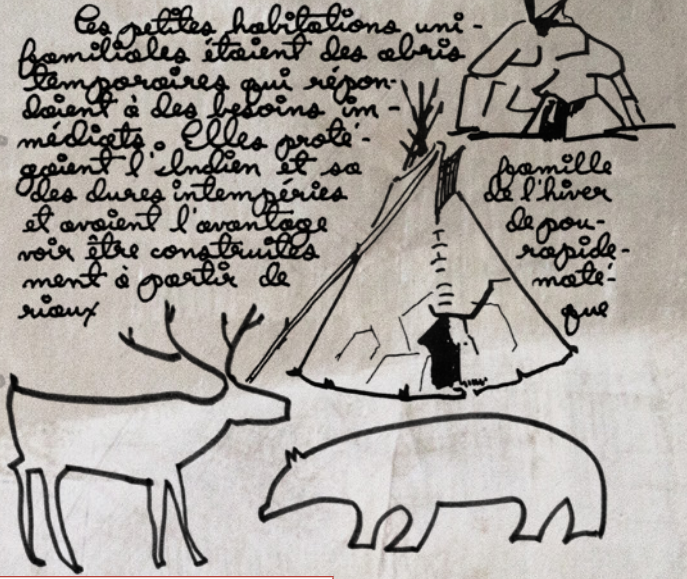 Ces petites habitations uni-
familiales étaient des abris
temporaires qui répon-
daient à des besoins im-
médiats. Elles proté-
geaient l'Indien et sa famille
des dures intempéries de l'hiver
et avaient l'avantage de pou-
voir être construites rapide-
ment à partir de maté-
riaux que